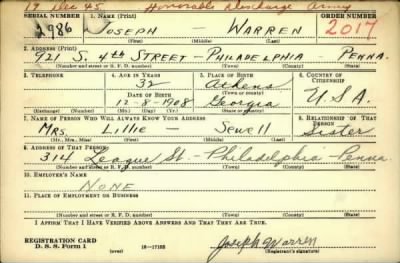 19 Dec 45 Honorable Discharge Army
SERIAL NUMBER 1. NAME (Print) ORDER NUMBER
2986 JOSEPH — WARREN 2017
(First) (Middle) (Last)
2. ADDRESS (Print)
921 S. 4TH STREET - PHILADELPHIA - PENNA.
(Number and street or R. F. D. number) (Town) (County) (State)
3. TELEPHONE 4. AGE IN YEARS 5. PLACE OF BIRTH 6. COUNTRY OF CITIZENSHIP
32 Athens
DATE OF BIRTH (Town or county)
12-8-1908 Georgia U.S.A.
(Exchange) (Number) (Mo.) (Day) (Yr.) (State or country)
7. NAME OF PERSON WHO WILL ALWAYS KNOW YOUR ADDRESS 8. RELATIONSHIP OF THAT PERSON
Mrs. Lillie — Sewell Sister
(Mr., Mrs., Miss) (First) (Middle) (Last)
9. ADDRESS OF THAT PERSON
314 League St - Philadelphia - Penna
(Number and street or R. F. D. number) (Town) (County) (State)
10. EMPLOYER'S NAME
NONE
11. PLACE OF EMPLOYMENT OR BUSINESS
(Number and street or R. F. D. number) (Town) (County) (State)
I AFFIRM THAT I HAVE VERIFIED ABOVE ANSWERS AND THAT THEY ARE TRUE.
REGISTRATION CARD
D. S. S. Form 1 (over) 16—17105 Joseph Warren
(Registrant's signature)